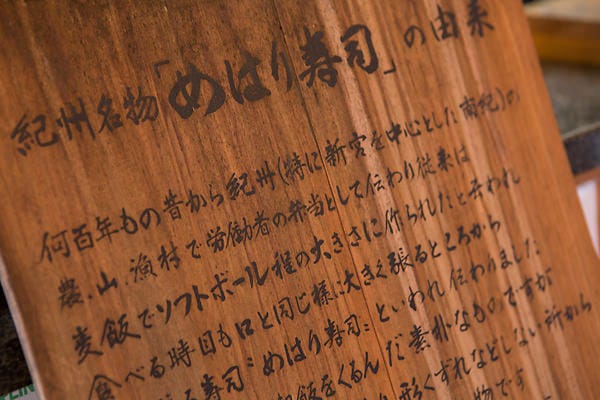 紀州名物「めはり寿司」の由来
何百年もの昔から紀州(特に新宮を中心とした南紀)の
農、山、漁村で労働者の弁当として伝わり従来は
麦飯でソフトボール程の大きさに作られたと云われ
食べる時目も口と同じ様に大きく張るところから
る寿司〝めはり寿司〟といわれ伝わりました
飯をくるんだ素朴なものですが
形くずれなどしない所から
物です